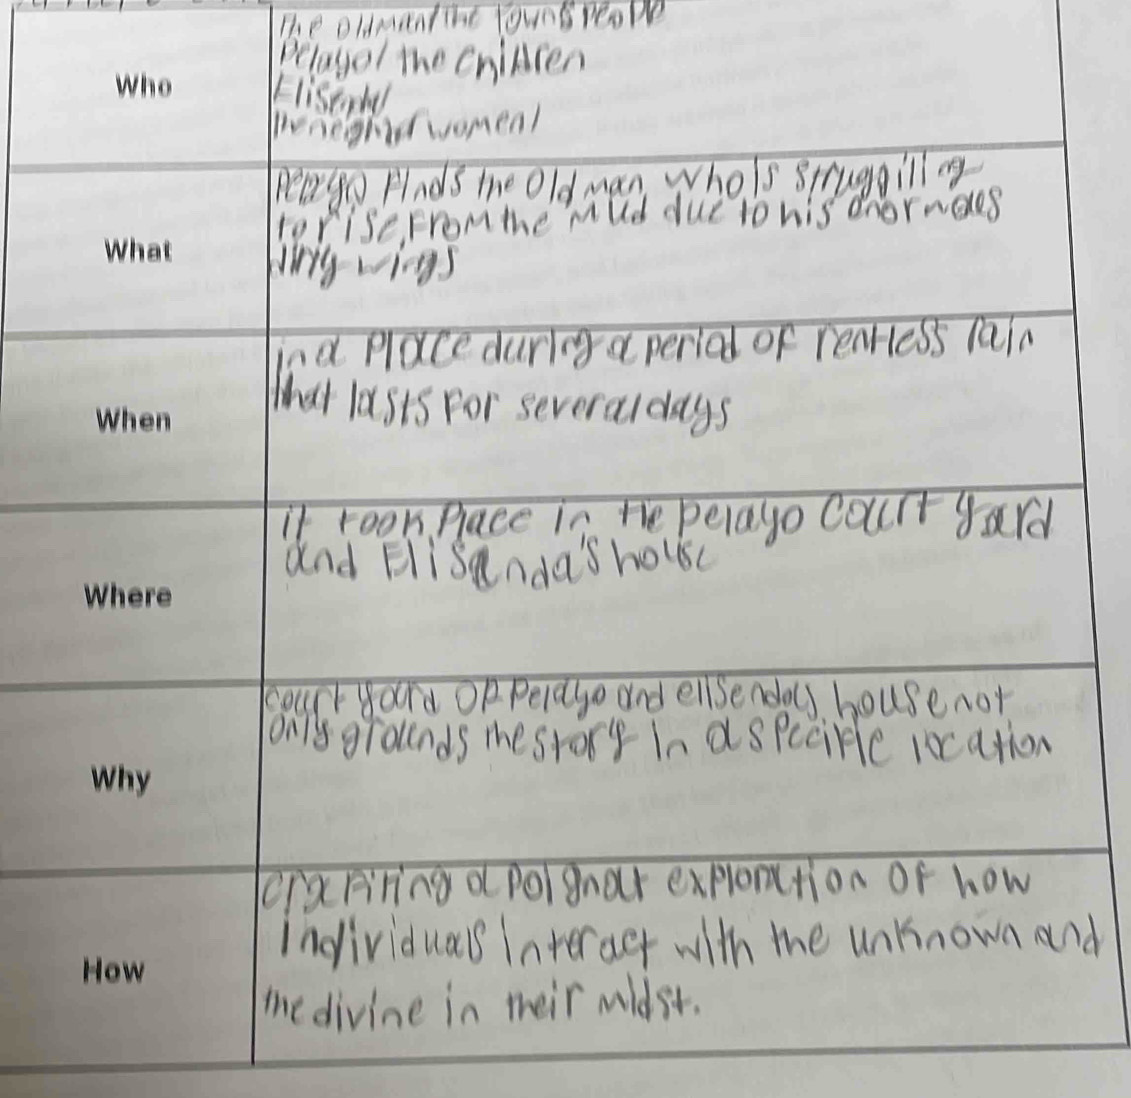 The old man/the towns people
Who
Pelayo/ the children
Elisenda/
the neighbor women/
What
Pelayo Finds the Old man, who is struggilling
to rise, From the Mud due to his enormous
dirty wings
When
in a Place during a period of rentless rain
that lasts For several days
Where
it took Place in the pelayo court yard
and Elisenda's house
Why
court yard OF Pelayo and elisendas house not
only grounds the story in a specific location
How
craFting a poignat exploration OF how
individuals interact with the unknown and
the divine in their midst.